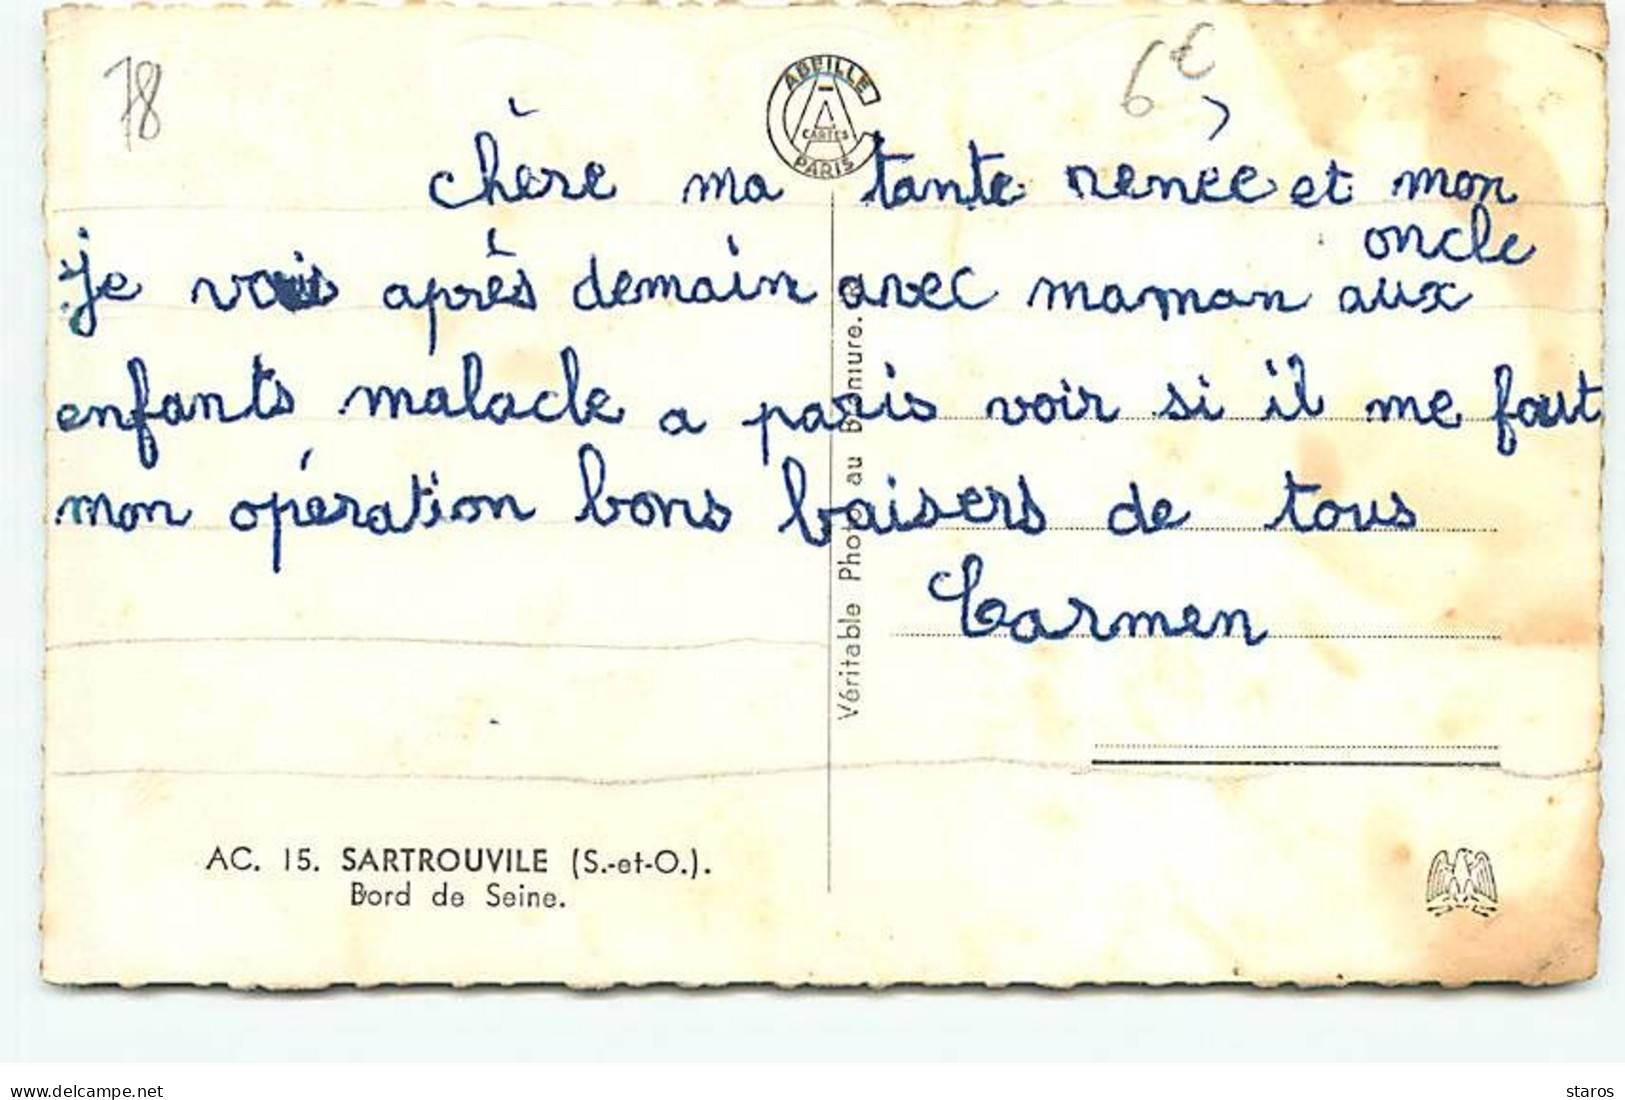 78
6€
ABEILLE
CARTES
PARIS
chère ma tante renée et mon
oncle
je vais après demain avec maman aux
enfants malade a paris voir si il me faut
mon opération bons baisers de tous
Carmen
Véritable Photo au Bromure.
AC. 15. SARTROUVILE (S.-et-O.).
Bord de Seine.
www.delcampe.net
staros